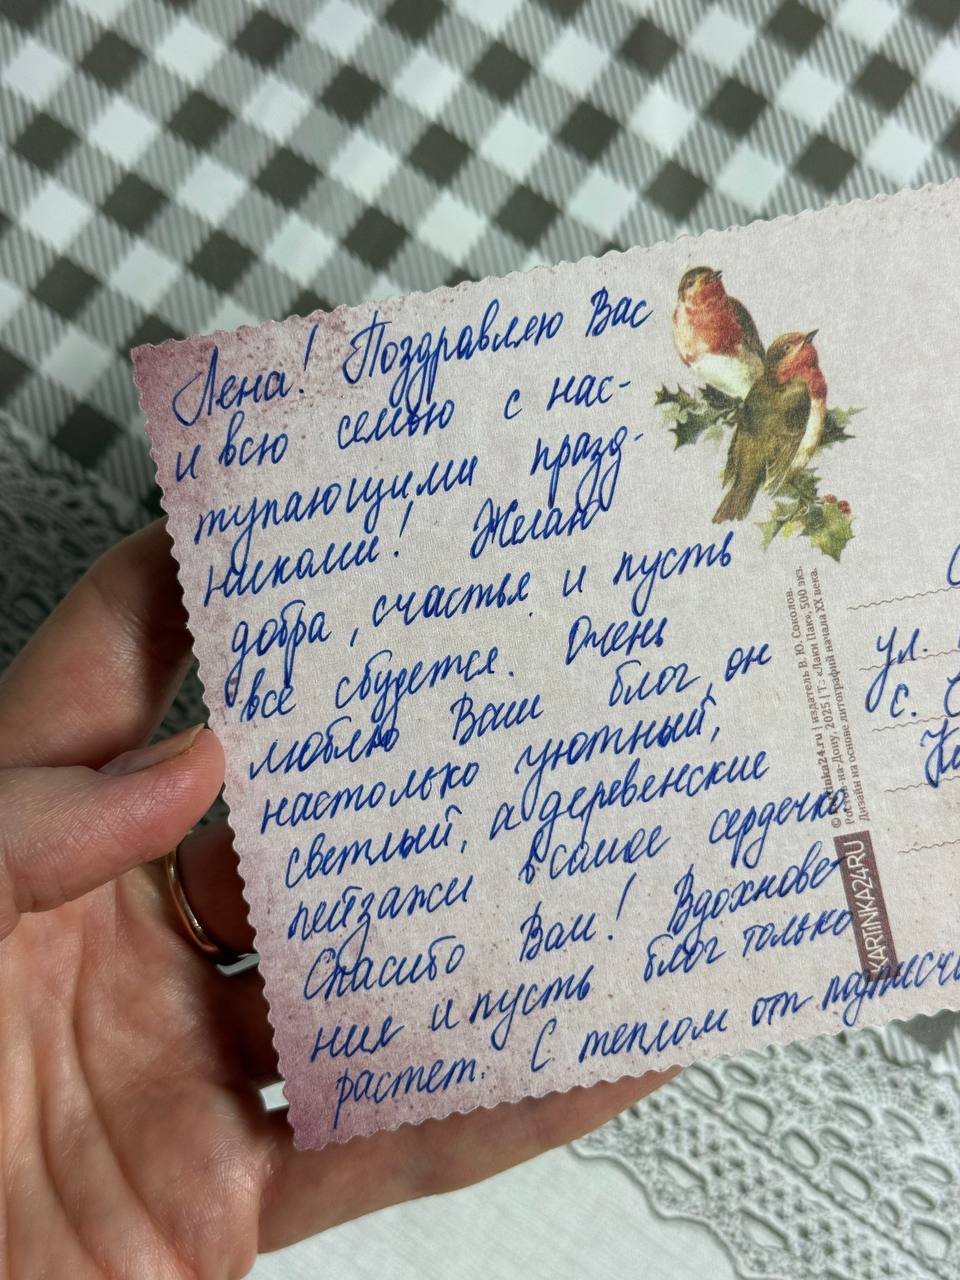 Лена! Поздравляю Вас
и всю семью с нас-
тупающими празд-
никами! Желаю
добра, счастья и пусть
все сбудется. Очень
люблю Ваш блог, он
настолько уютный,
светлый, а деревенские
пейзажи в самое сердечко
Спасибо Вам! Вдохнове-
ния и пусть блог только
растет. С теплом от
ул.
с.
© kartinka24.ru | издатель В. Ю. Соколов.
Ростов-на-Дону, 2025 | Т.: «Лаки Пак», 500 экз.
Дизайн на основе литографий начала XX века.
KARTINKA24.RU